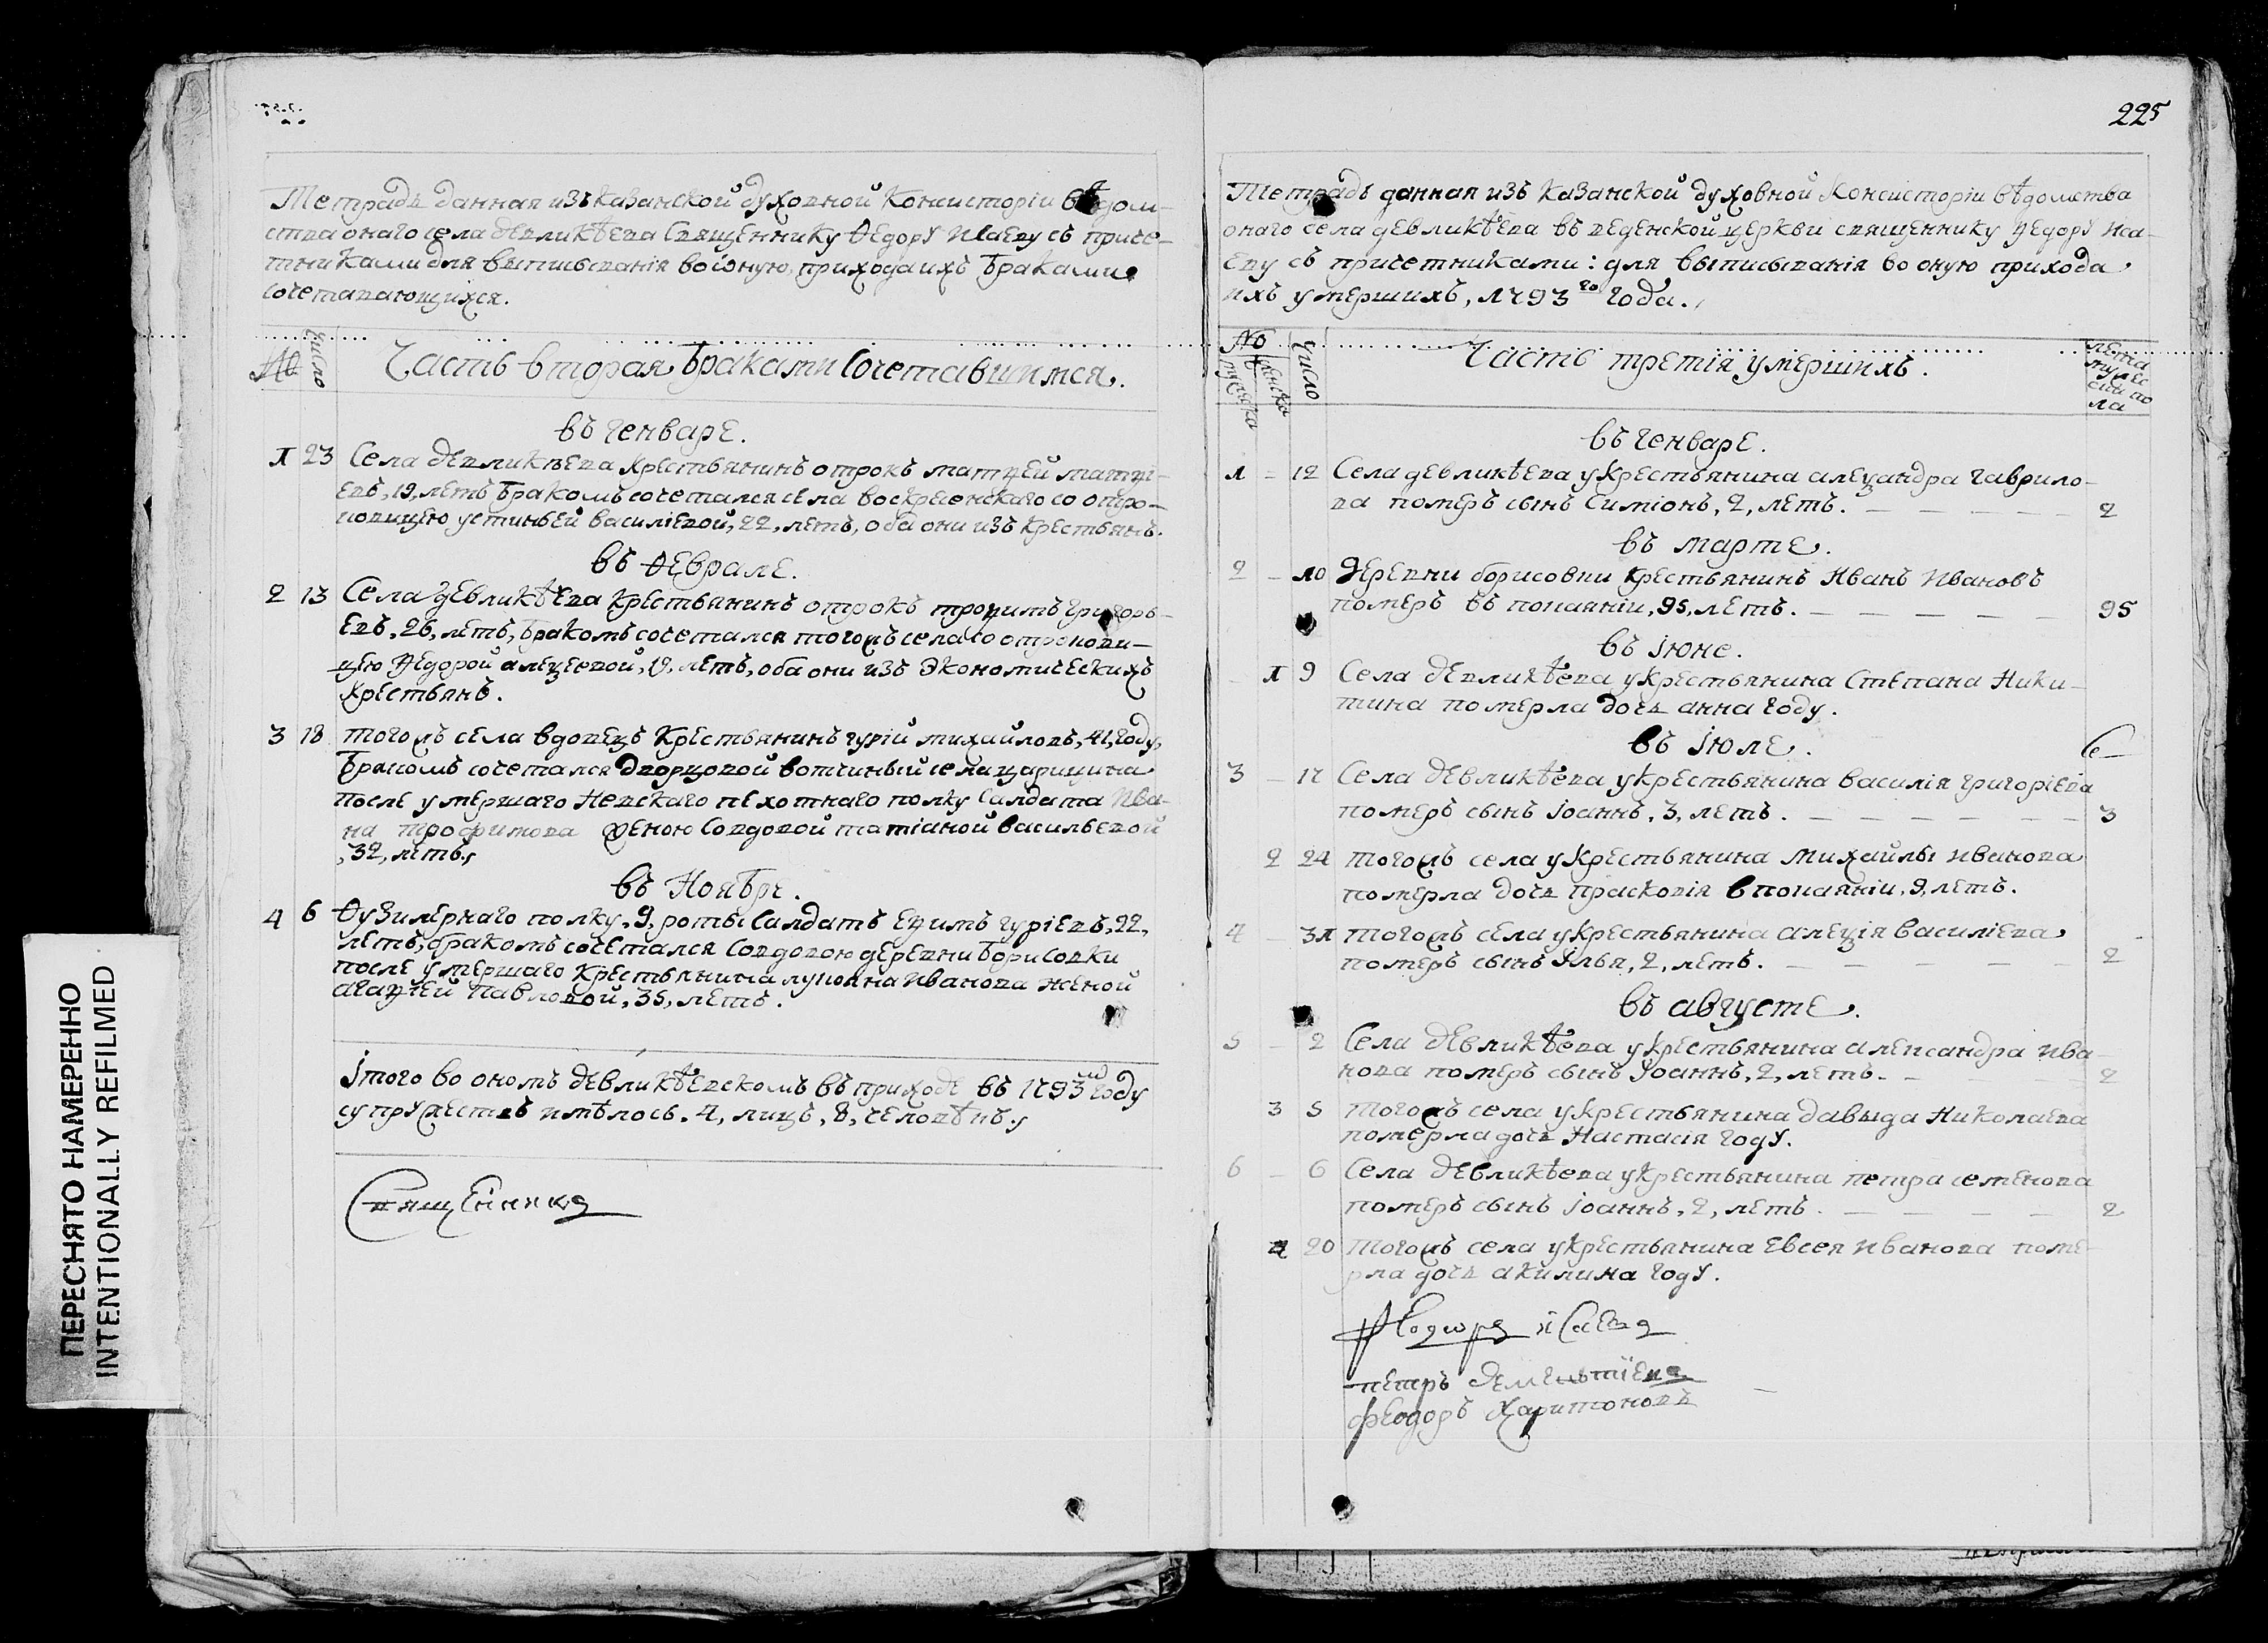 Тетрадь данная изъ Казанской духовной Консисторіи вѣдом-
ства онаго села девликѣева Священнику Ѳедору Исаеву съ приче-
тниками для выписыванія во оную прихода ихъ браками
сочетавающихся.
№ число Часть вторая браками Сочетавшимся.
въ генваре.
1 23 Села девликѣева крестьянинъ отрокъ матфей матфі-
евъ, 19, летъ бракомъ сочетался села воскресенскаго со отро-
ковицею устиньей василіевой, 22, летъ, оба они изъ крестьянъ.
въ Ѳеврале.
2 13 Села девликѣева крестьянинъ отрокъ трофимъ григорь-
евъ, 26, летъ, бракомъ сочетался тогожъ села со отрокови-
цею Ѳедорой алеѯеевой, 19, летъ, оба они изъ экономическихъ
крестьянъ.
3 18 тогожъ села вдовецъ крестьянинъ гурій михайловъ, 41, году,
бракомъ сочетался дворцовой вотчины села царицына
после умершаго Невскаго пехотнаго полку Салдата Ива-
на трофимова женою Совдовой татіаной васильевой
, 32, летъ,
въ Ноябре.
4 6 Ѳузилернаго полку, 9, роты Салдатъ ефимъ гуріевъ, 22,
летъ, бракомъ сочетался Совдовою деревни борисовки
после умершаго крестьянина лукояна иванова женой
агафіей павловой, 35, летъ.
Ітого во ономъ девликѣевскомъ въ приходе въ 1793м году
супружествъ имѣлось, 4, лицъ, 8, человѣкъ,
Священникъ
225
Тетрадь данная изъ казанской духовной Консисторіи вѣдомства
онаго села девликѣева въведенской церкви священнику Ѳедору Иса-
еву съ причетниками: для выписыванія во оную прихода
ихъ умершихъ, 1793го года.
№ число Часть третія умершихъ. лета мужескаго пола
мужеска женска
въ генваре.
1 - 12 Села девликѣева у крестьянина алеѯандра гаврило-
ва померъ сынъ Симіонъ, 2, летъ. 2
въ марте.
2 - 10 деревни борисовки крестьянинъ Иванъ Ивановъ
померъ въ покаяніи, 95, летъ. 95
въ іюне.
1 9 Села девликѣева у крестьянина Степана Ники-
тина померла дочь анна году.
въ іюле.
3 - 17 Села девликѣева у крестьянина василія григоріева
померъ сынъ іоаннъ, 3, летъ. 3
2 24 тогожъ села у крестьянина михайлы иванова
померла дочь прасковія в покаяніи, 9, летъ.
4 - 31 тогожъ села у крестьянина алеѯія василіева
померъ сынъ Илья, 2, летъ. 2
въ августе.
5 - 2 Села девликѣева у крестьянина александра ива-
нова померъ сынъ Іоаннъ, 2, летъ. 2
3 5 тогожъ села у крестьянина давыда николаева
померла дочь Настасія году.
6 - 6 Села девликѣева у крестьянина петра семенова
померъ сынъ іоаннъ, 2, летъ. 2
4 20 тогожъ села у крестьянина Евсея иванова поме-
рла дочь акилина году.
Ѳеодоръ исаевъ
петръ дементіевъ
феодоръ харитоновъ
ПЕРЕСНЯТО НАМЕРЕННО
INTENTIONALLY REFILMED